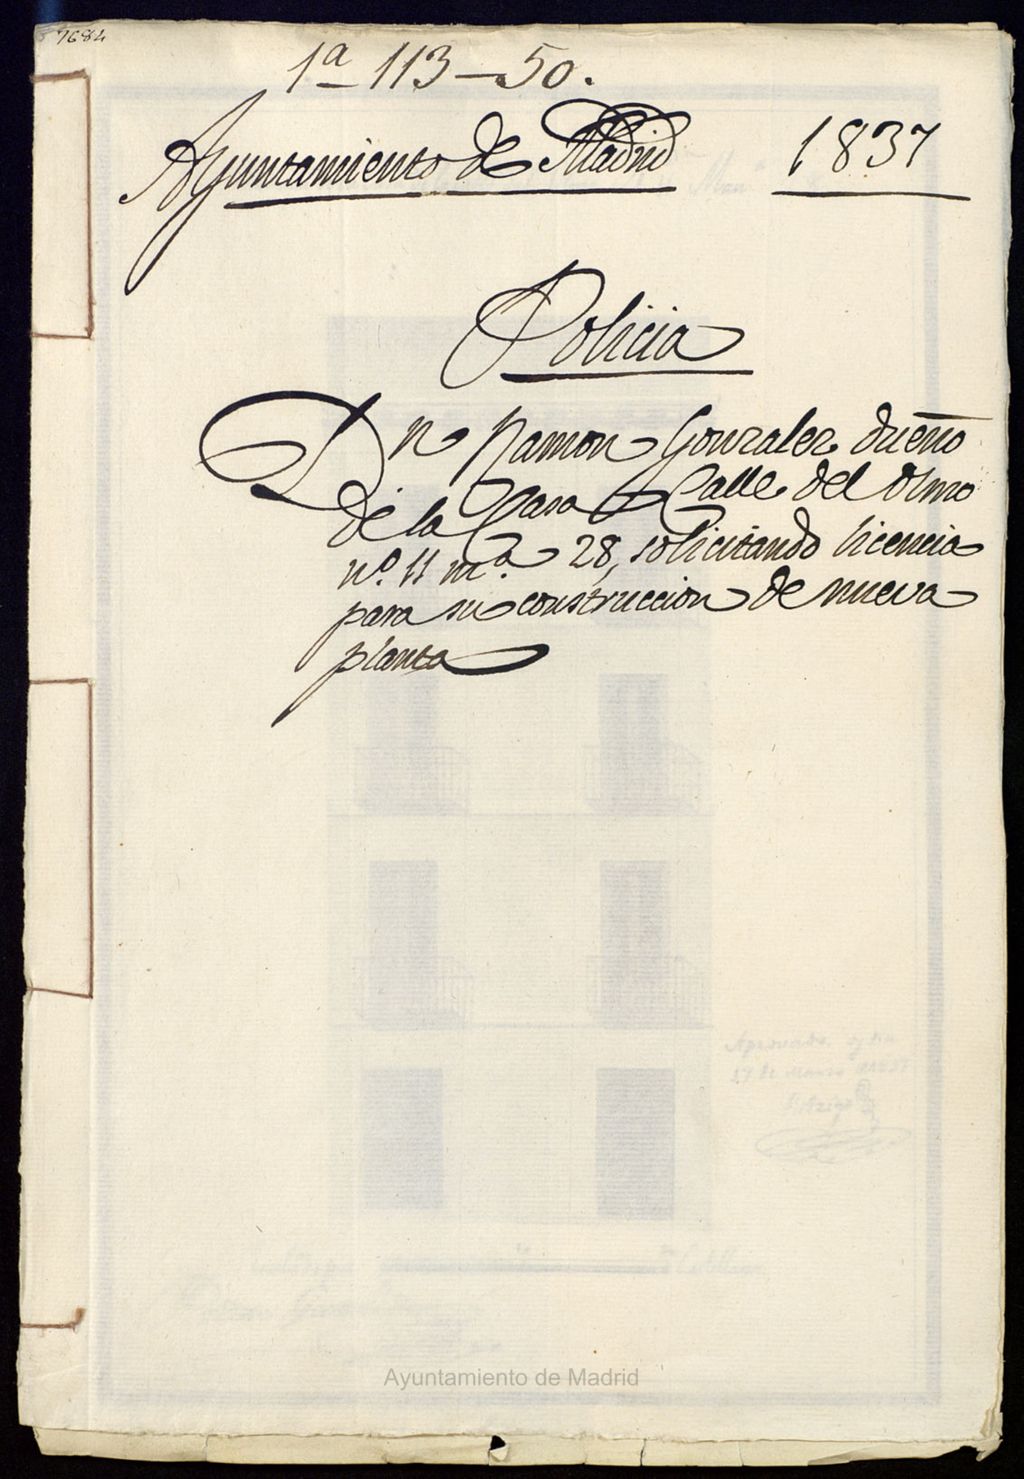 7684
1ª 113-50.
Ayuntamiento de Madrid 1837
Policia
Dn Ramon Gonzalez dueño
de la Casa Calle del Olmo
nº. 11 mª. 28, solicitando licencia
para su construccion de nueva
planta
Aprovado
27 de Marzo 1837
Ayuntamiento de Madrid